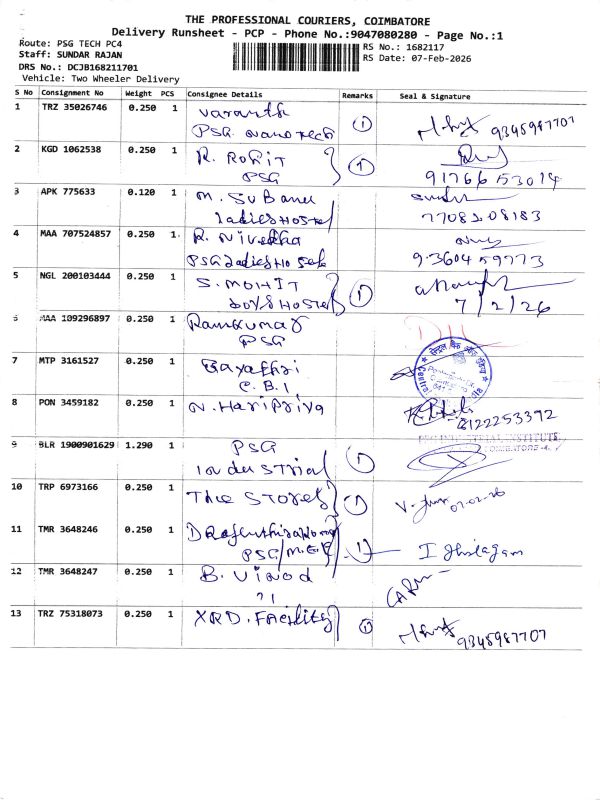 THE PROFESSIONAL COURIERS, COIMBATORE
Delivery Runsheet - PCP - Phone No.:9047080280 - Page No.:1
Route: PSG TECH PC4
RS No.: 1682117
Staff: SUNDAR RAJAN
RS Date: 07-Feb-2026
DRS No.: DCJB168211701
Vehicle: Two Wheeler Delivery
S No Consignment No Weight PCS Consignee Details Remarks Seal & Signature
1 TRZ 35026746 0.250 1 Varanth 1
PSG Nano Tech 9345987707
2 KGD 1062538 0.250 1 R. Rohit 1
PSG
3 APK 775633 0.120 1 M. Subanu
Ladies Hostel
4 MAA 707524857 0.250 1 R. Nivetha
PSG Ladies Hostel
5 NGL 200103444 0.250 1 S. MOHIT 1
boys Hostel 7/2/26
6 MAA 109296897 0.250 1 Ramkumar
PSG
7 MTP 3161527 0.250 1 Gayathri
C.B.I
8 PON 3459182 0.250 1 N. Haripriya
8122253392
9 BLR 1900901629 1.290 1 PSG 1
Industrial
PSG INDUSTRIAL INSTITUTE
COIMBATORE-4
10 TRP 6973166 0.250 1 The Stores 1
07-02-26
11 TMR 3648246 0.250 1
PSG/M.E 1
12 TMR 3648247 0.250 1 B. Vinod
13 TRZ 75318073 0.250 1 XRD. Facility 1
9345987707